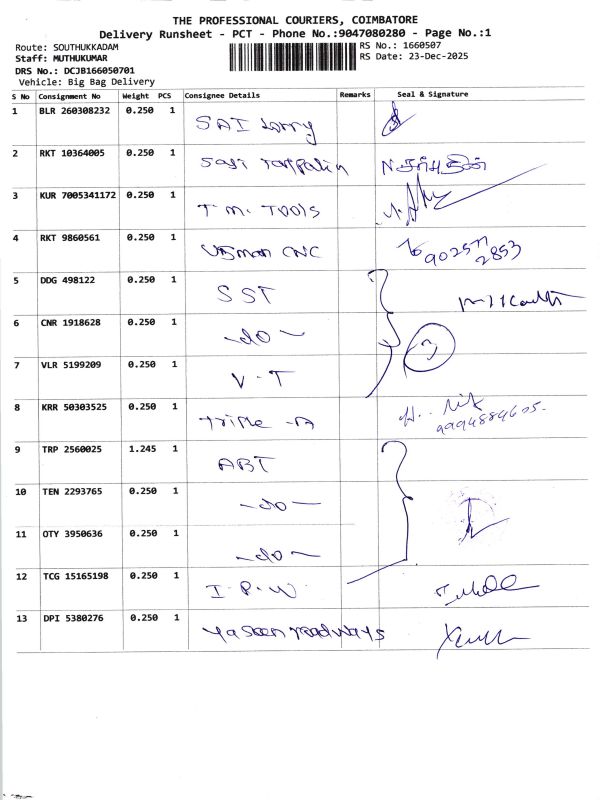 THE PROFESSIONAL COURIERS, COIMBATORE
Delivery Runsheet - PCT - Phone No.:9047080280 - Page No.:1
Route: SOUTHUKKADAM
RS No.: 1660507
Staff: MUTHUKUMAR
RS Date: 23-Dec-2025
DRS No.: DCJB166050701
Vehicle: Big Bag Delivery
S No Consignment No Weight PCS Consignee Details Remarks Seal & Signature
1 BLR 260308232 0.250 1 SAI Lorry
2 RKT 10364005 0.250 1
3 KUR 7005341172 0.250 1 T.M. Tools
4 RKT 9860561 0.250 1 Usman CNC 90255 2853
5 DDG 498122 0.250 1 SST
6 CNR 1918628 0.250 1 -do- 3
7 VLR 5199209 0.250 1 V.T
8 KRR 50303525 0.250 1 Triple -A
9 TRP 2560025 1.245 1 ABT
10 TEN 2293765 0.250 1 -do-
11 OTY 3950636 0.250 1 -do-
12 TCG 15165198 0.250 1 I.P.W
13 DPI 5380276 0.250 1 Yaseen roadways